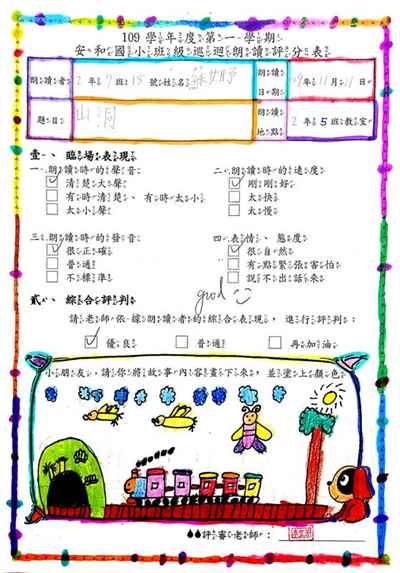 109學年度第一學期
安和國小班級巡迴朗讀評分表
朗讀者 2年9班18號姓名 蘇妤
朗讀日期 年11月11日
題目 山洞
朗讀地點 2年5班教室
壹、臨場表現
一、朗讀時的聲音 二、朗讀時的速度
清楚大聲 剛剛好
有時清楚、有時太小 太快
太小聲 太慢
三、朗讀時的發音 四、表情、態度
很正確 很自然
普通 有點緊張害怕
不標準 說不出話來
貳、綜合評判 good
請老師依據朗讀者的綜合表現，進行評判：
優良 普通 再加油
小朋友，請你將故事內容畫下來，並塗上顏色。
評審老師：